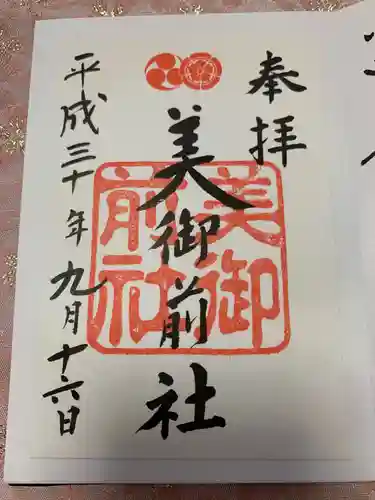 奉拝
美御前社
美御
前社
平成三十年九月十六日